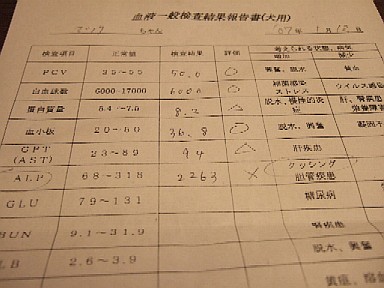 血液一般検査結果報告書(犬用)
ちゃん '07年 1月12日
検査項目 正常値 検査結果 評価 考えられる状態、病気
増加 減少
PCV 35-55 50.0 ○ 興奮、脱水 貧血
白血球数 6000-17000 6000 ○ 細菌感染 ストレス ウイルス感染
蛋白質量 5.4-7.5 8.2 △ 脱水、慢性的炎症 肝、腎疾患
血小板 20-50 36.8 ○ 脱水、興奮
GPT (AST) 23-89 94 △ 肝疾患
ALP 68-318 2263 × クッシング 胆管疾患
GLU 79-131 糖尿病
BUN 9.1-31.9 腎疾患
LB 2.6-3.9 脱水、興奮
黄疸、